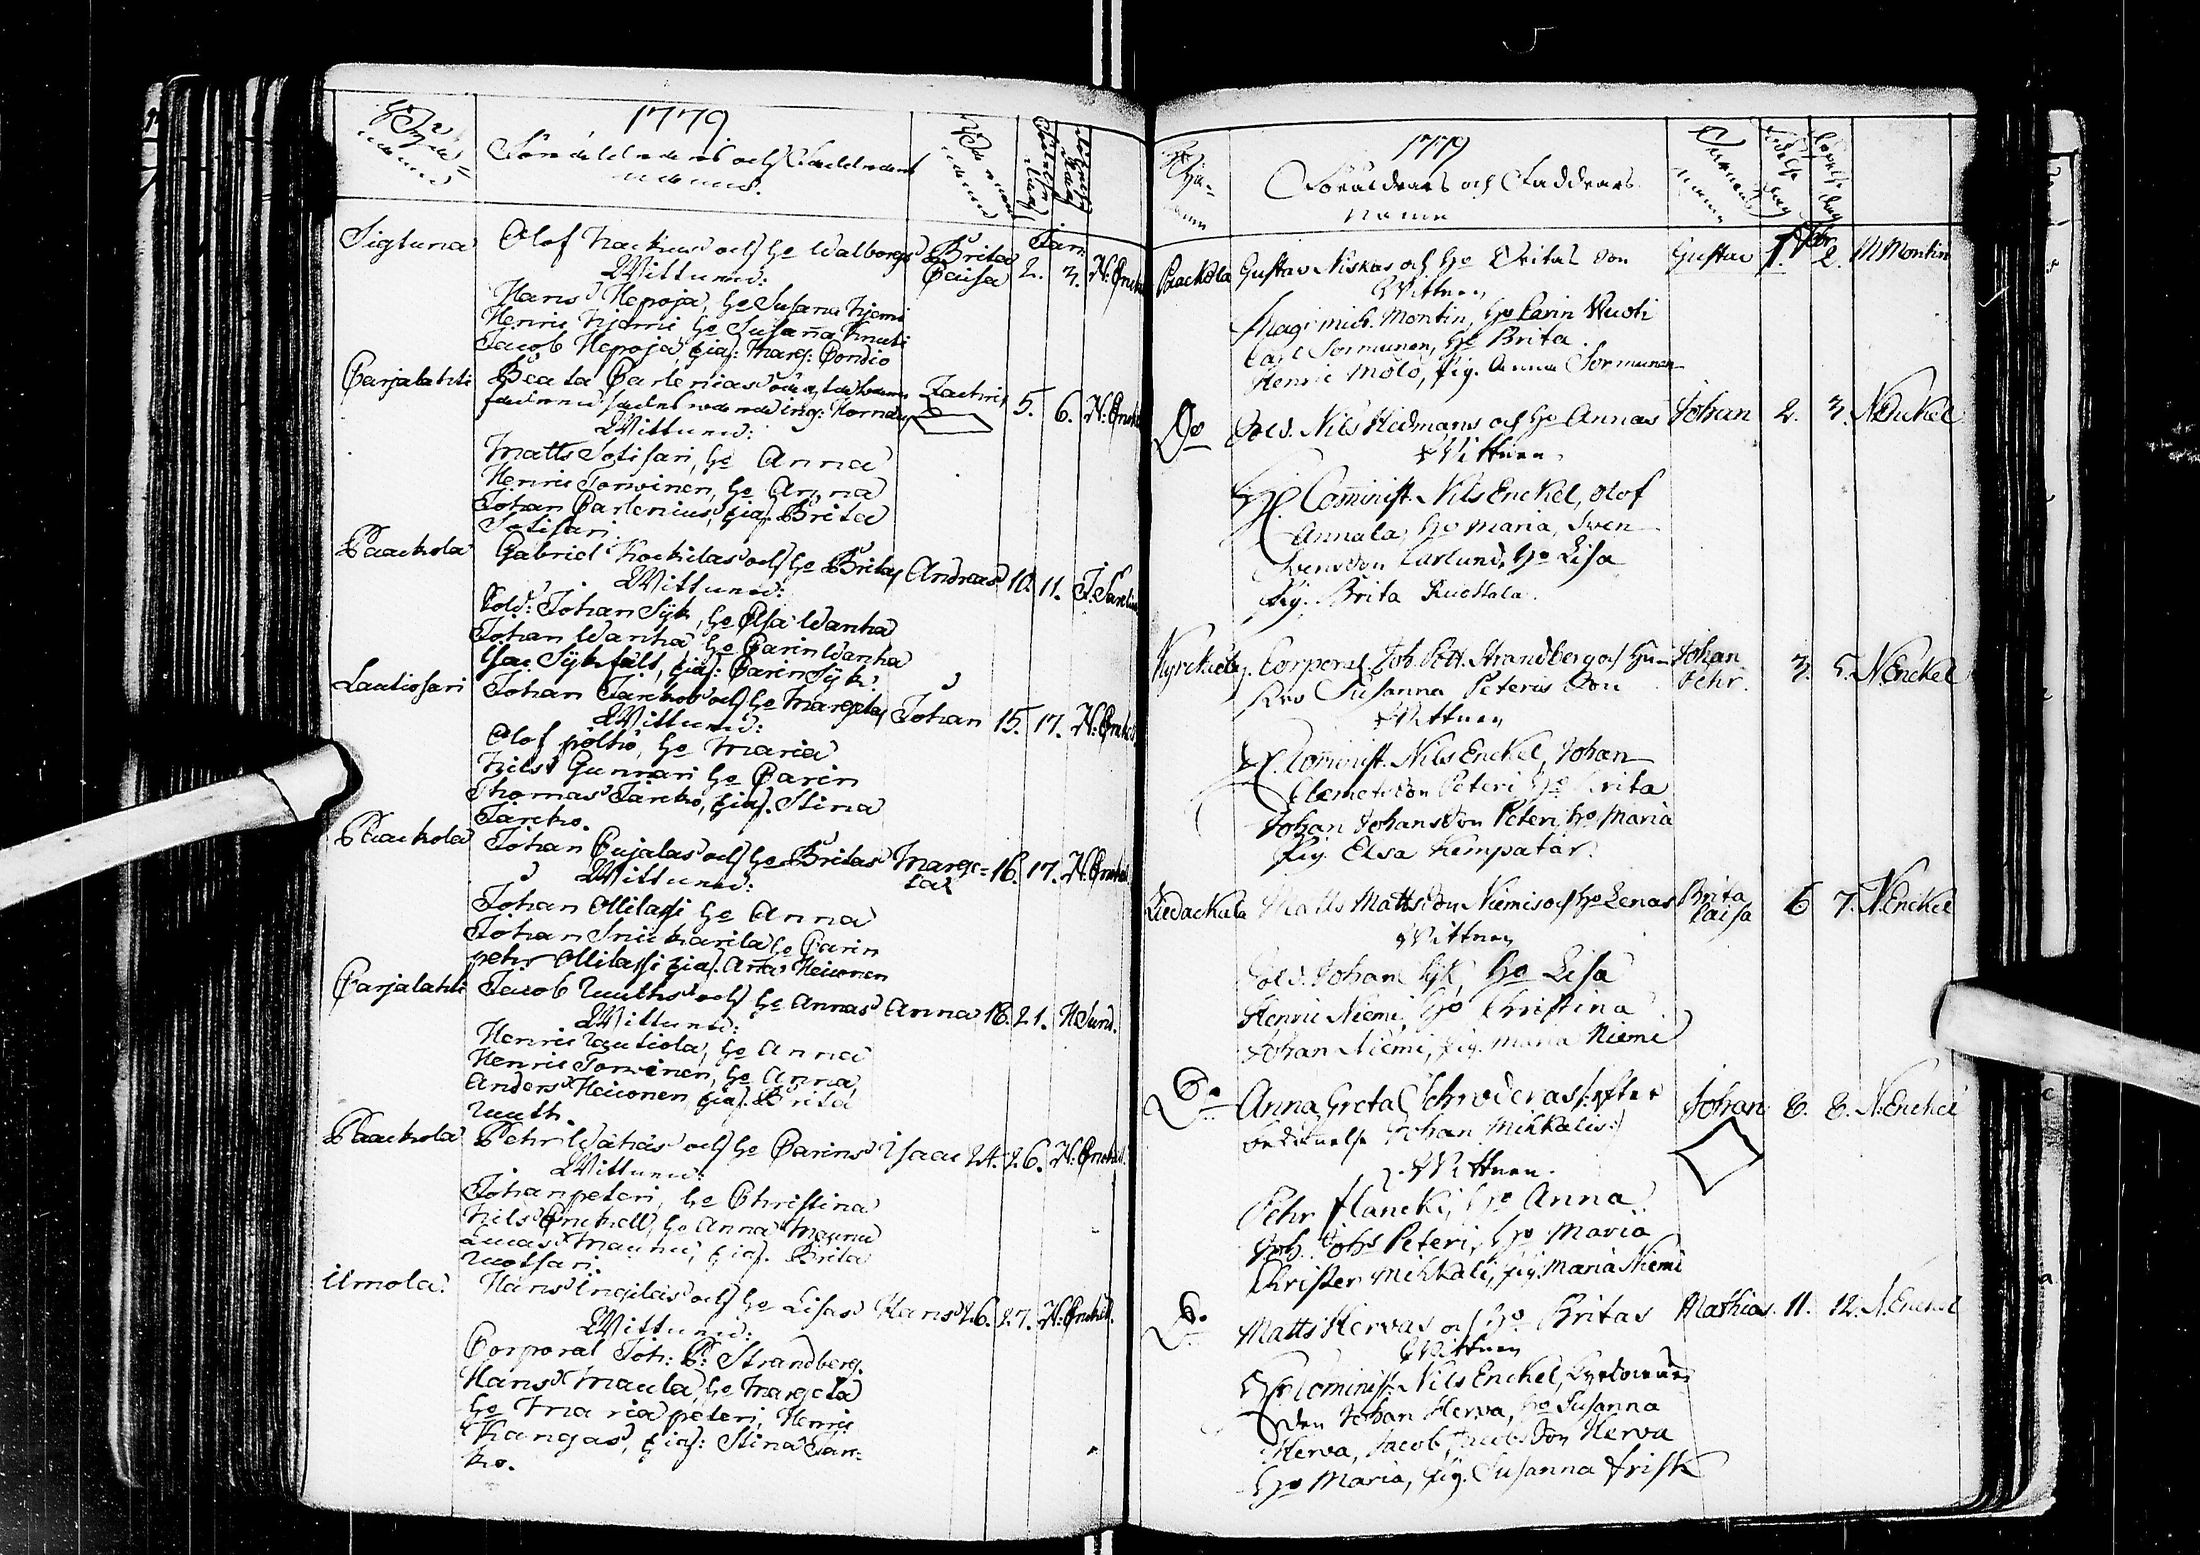 1779
Föräldrars och Faddrars
namn
Sigtuna Olof och Ho Walborgs Brita Jan.
Wittnen: Caisa 2. 3. N: Enckel
Hans Hepoja, Ho Susana Niemi
Henric Ho Susaña Knuti
Jacob Hepoja, Pig: Marg:
Carjalahti Beata Carlenias Zachris 5. 6. N: Enckel
Wittnen:
Matts Sotisari, Ho Anna
Henric Torvinen, Ho Anna
Johan Carlenius, Pig. Brita
Sotisari
Paackola Gabriel Kockilas och Ho Britas Andreas 10. 11.
Wittnen:
Sold: Johan Sÿk, Ho Elsa Wanha
Johan Wanha, Ho Carin Wanha
Isac Sÿkfält, Pig: Carin Sÿk:
Lautiosari Johan Jarckos och Ho Margetas Johan 15. 17. N: Enckel
Wittnen:
Olof pöltiö, Ho Maria
Nils Gunnari Ho Carin
Thomas Jarcko, Pig. Stina
Jarcko.
Paackola Johan Cujalas och Ho Britas Marge= 16. 17. N: Enckel
Wittnen: ta
Johan Ollilassi Ho Anna
Johan Ho Carin
pehr Ollilassi Pig. Aña Heiconen
Carjalahti Jacob Ruuths och Ho Annas Anna 18. 21.
Wittnen:
Henric Rautiola, Ho Anna
Henric Torvinen, Ho Anna
Anders Heiconen Pig. Brita
Ruuth.
Paackola Pehr Wähäs och Ho Carins Isaac 24. 26. N: Enckel
Wittnen:
Johan peteri, Ho Christina
Nils Enckell, Ho Anna Maunu
Lucas Maunu, Pig. Brita
Ruotsari.
Hans Ingilas och Ho Lisas Hans 26. 27. N: Enckel.
Wittnen:
Corporal Joh: P: Strandberg.
Hans Maula, Ho Margeta
Ho Maria peteri, Henric
Kangas, Pig: Stina Jar=
ko.
1779
Föräldrars och Faddrars
namn
Paackola Gustav Niskas och Ho Britas Son Gustav 1. Febr 2. M Montin
Wittnen
Mag: Mich. Montin, Ho Carin Ruoti
Carl Sormunen, Ho Brita.
Henric Mölö, Pig. Anna Sormunen
Do Sold. Nils Hedmans och Ho Annas Johan 2. 3. N Enckel
Wittnen
Hr Cominist. Nils Enckel, Olof
Annala, Ho Maria, Sven
Svensson Carlund, Ho Lisa
Pig. Brita Ruottala.
Kyrckioby. Corporal Joh. Pett. Strandberg och Hu= Johan
stro Susanna Peteris Son Pehr. 3. 5. N. Enckel
Wittnen
Hr. Cominist. Nils Enckel, Johan
Clemetsson Peteri Ho Brita
Johan Johansson Peteri, Ho Maria
Pig. Elsa Kempatar.
Liedackala Matts Mattsson Niemis och Ho Lenas Brita
Caisa 6 7. N. Enckel
Wittnen
Sold. Johan Sÿk, Ho Lisa
Henric Niemi, Ho Christina
Johan Niemi, Pig. Maria Niemi
Do Anna Greta Schroderas /: efter Johan 8. 8. N: Enckel
Johan Mihkalis:/
Wittnen.
Pehr Ho Anna
Joh. Johs Peteri, Ho Maria
Christer Mihkali, Pig. Maria Niemi
Do Matts Hervas och Ho Britas Mathias. 11. 12. N. Enckel
Wittnen
Hr Cominist. Nils Enckel,
Johan Herva, Ho Susanna
Herva, Jacob Jacobsson Herva
Ho Maria, Pig. Susanna Frisk